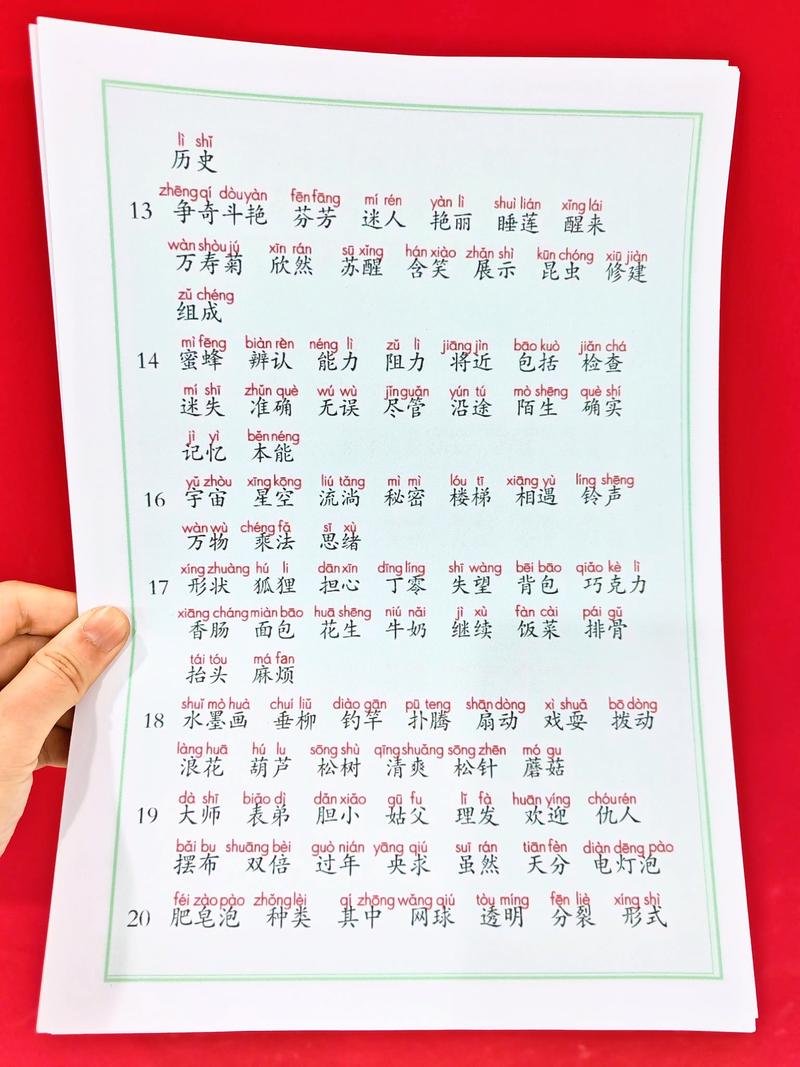 lì shǐ
历史
zhēng qí dòu yàn fēn fāng mí rén yàn lì shuì lián xǐng lái
13 争奇斗艳 芬芳 迷人 艳丽 睡莲 醒来
wàn shòu jú xīn rán sū xǐng hán xiào zhǎn shì kūn chóng xiū jiàn
万寿菊 欣然 苏醒 含笑 展示 昆虫 修建
zǔ chéng
组成
mì fēng biàn rèn néng lì zǔ lì jiāng jìn bāo kuò jiǎn chá
14 蜜蜂 辨认 能力 阻力 将近 包括 检查
mí shī zhǔn què wú wù jǐn guǎn yún tú mò shēng què shí
迷失 准确 无误 尽管 沿途 陌生 确实
jì yì běn néng
记忆 本能
yǔ zhòu xīng kōng liú tǎng mì mì lóu tī xiāng yù líng shēng
16 宇宙 星空 流淌 秘密 楼梯 相遇 铃声
wàn wù chéng fǎ sī xù
万物 乘法 思绪
xíng zhuàng hú li dān xīn dīng líng shī wàng bēi bāo qiǎo kè lì
17 形状 狐狸 担心 丁零 失望 背包 巧克力
xiāng cháng miàn bāo huā shēng niú nǎi jì xù fàn cài pái gǔ
香肠 面包 花生 牛奶 继续 饭菜 排骨
tái tóu má fan
抬头 麻烦
shuǐ mò huà chuí liǔ diào gān pū teng shān dòng xì shuǎ bō dòng
18 水墨画 垂柳 钓竿 扑腾 扇动 戏耍 拨动
làng huā hú lu sōng shù qīng shuǎng sōng zhēn mó gu
浪花 葫芦 松树 清爽 松针 蘑菇
dà shī biǎo dì dǎn xiǎo gū fu lǐ fà huān yíng chóu rén
19 大师 表弟 胆小 姑父 理发 欢迎 仇人
bǎi bu shuāng bèi guò nián yāng qiú suī rán tiān fèn diàn dēng pào
摆布 双倍 过年 央求 虽然 天分 电灯泡
féi zào pào zhǒng lèi qí zhōng wǎng qiú tòu míng fēn liè xíng shì
20 肥皂泡 种类 其中 网球 透明 分裂 形式